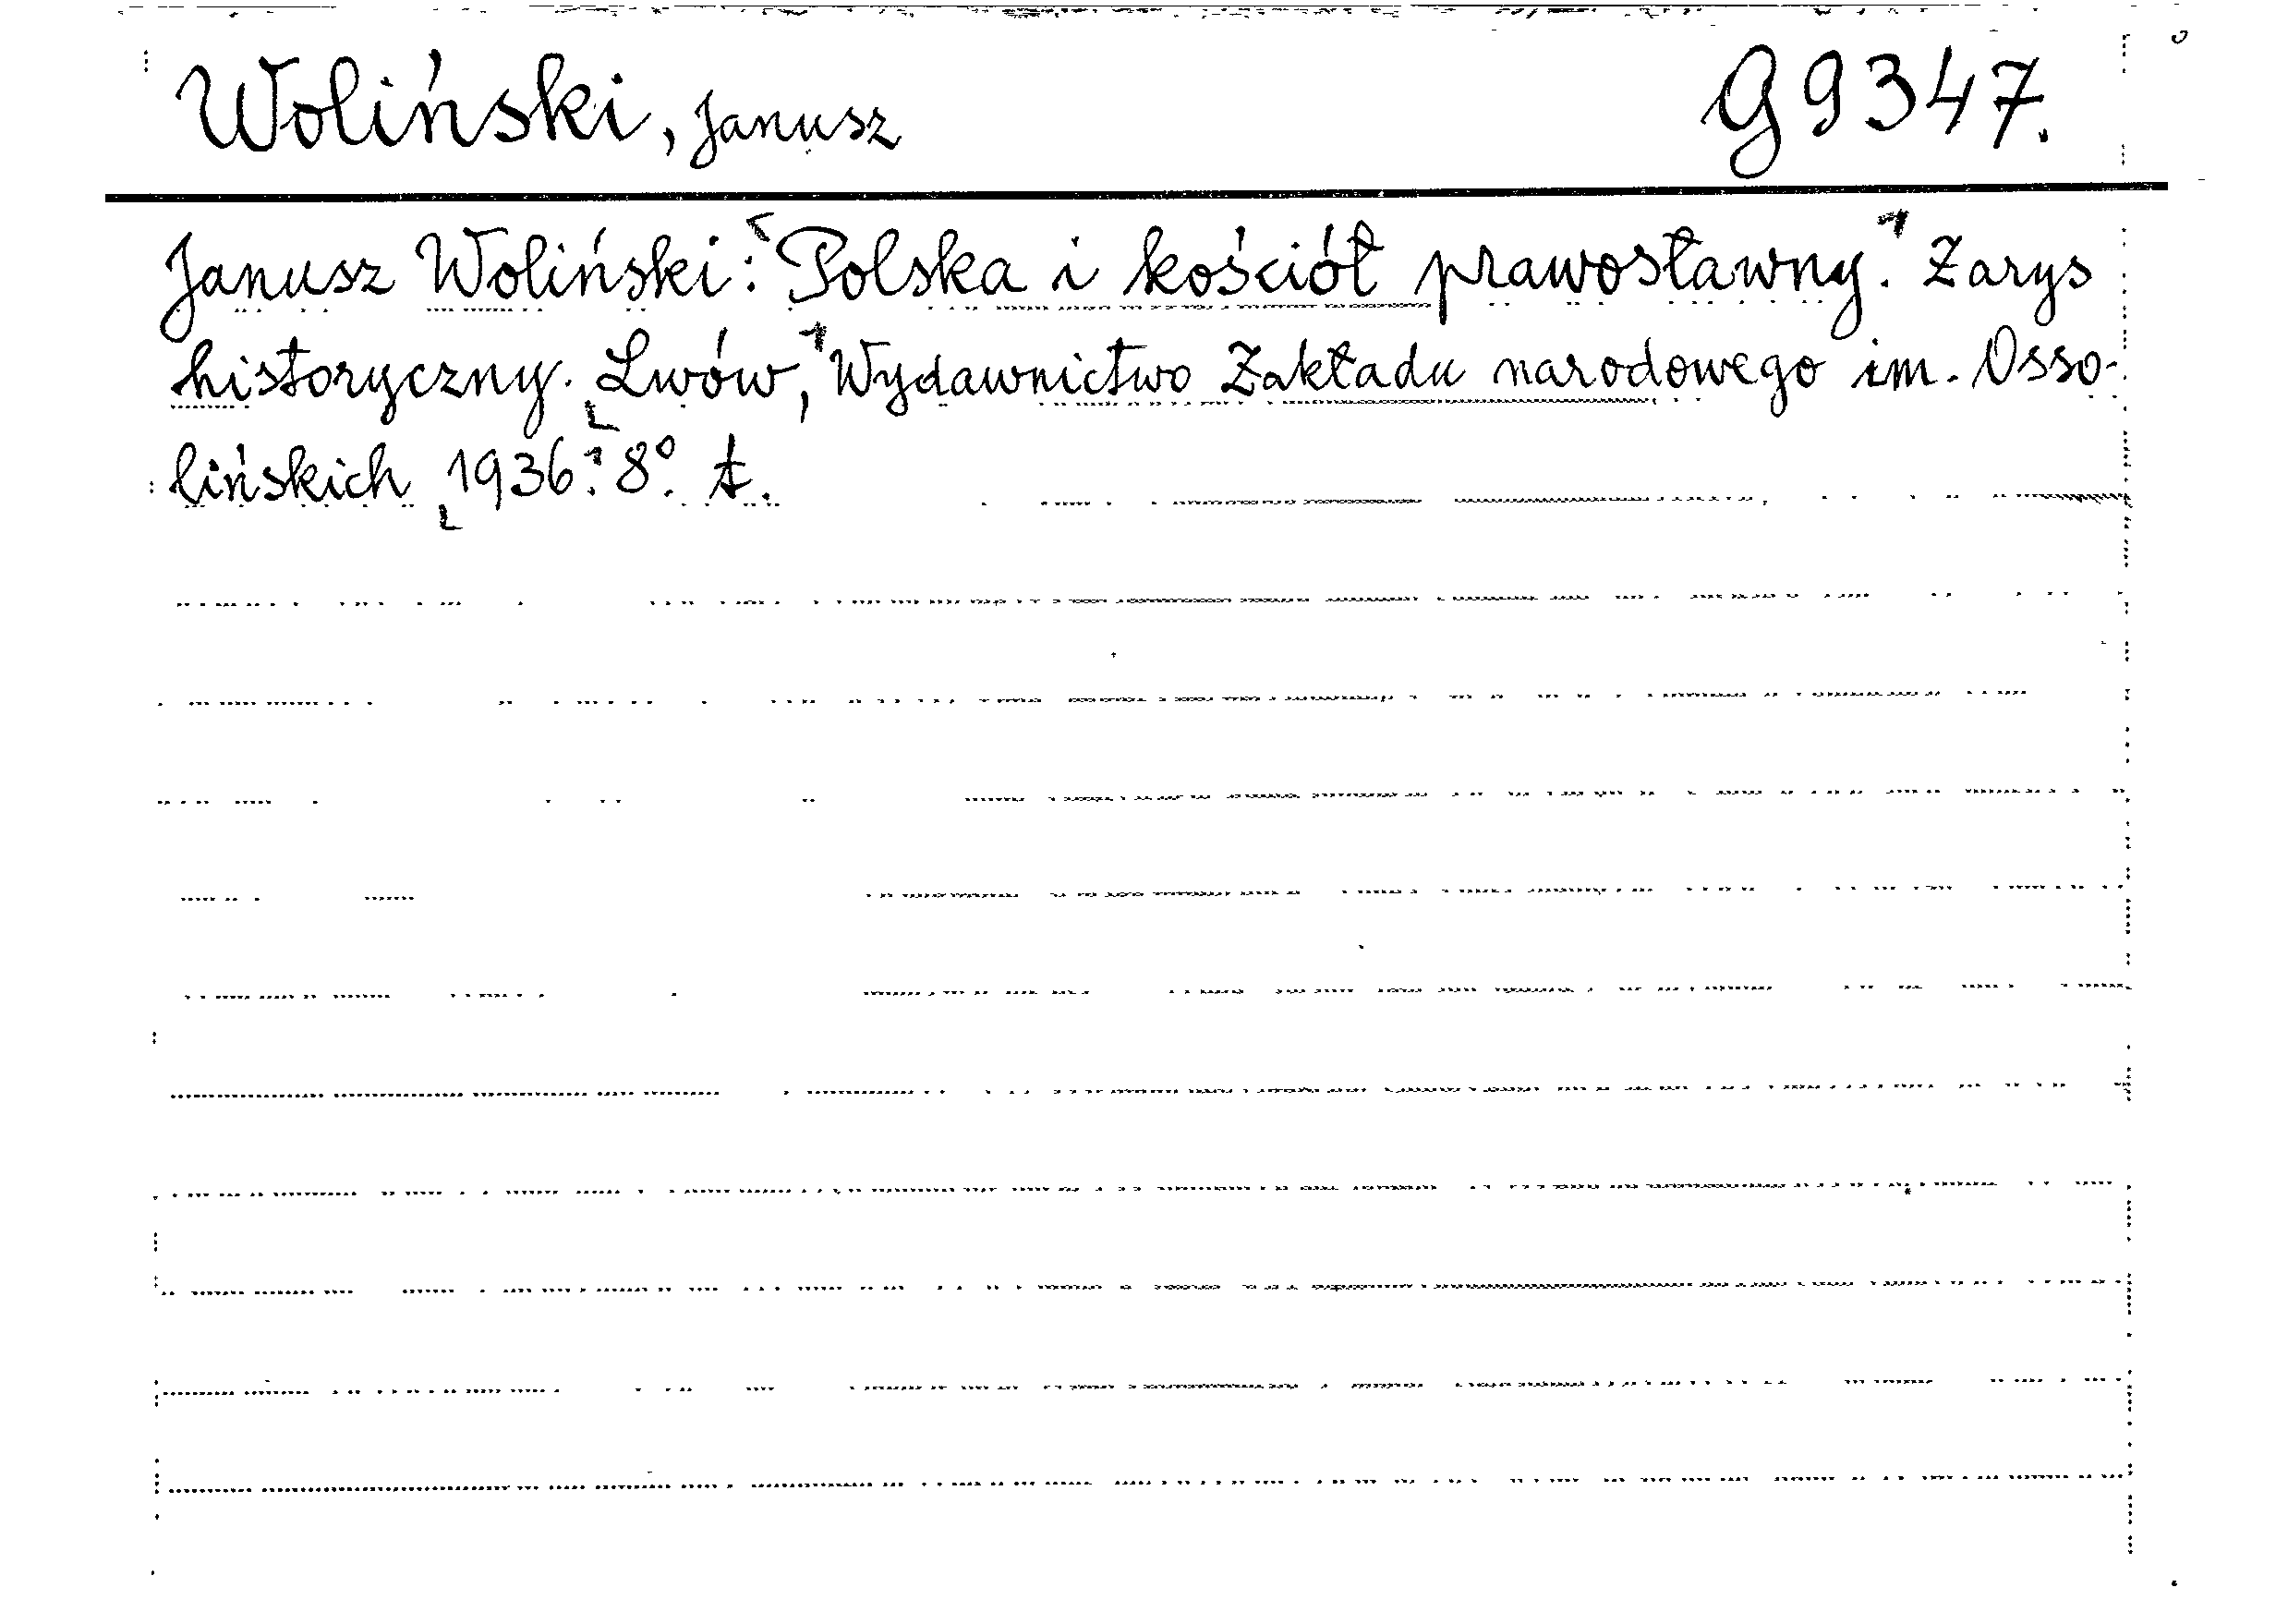 Woliński, Janusz G 9347.
Janusz Woliński: Polska i kościół prawosławny. Zarys
historyczny. Lwów, Wydawnictwo Zakładu narodowego im. Osso-
lińskich 1936. 8°.